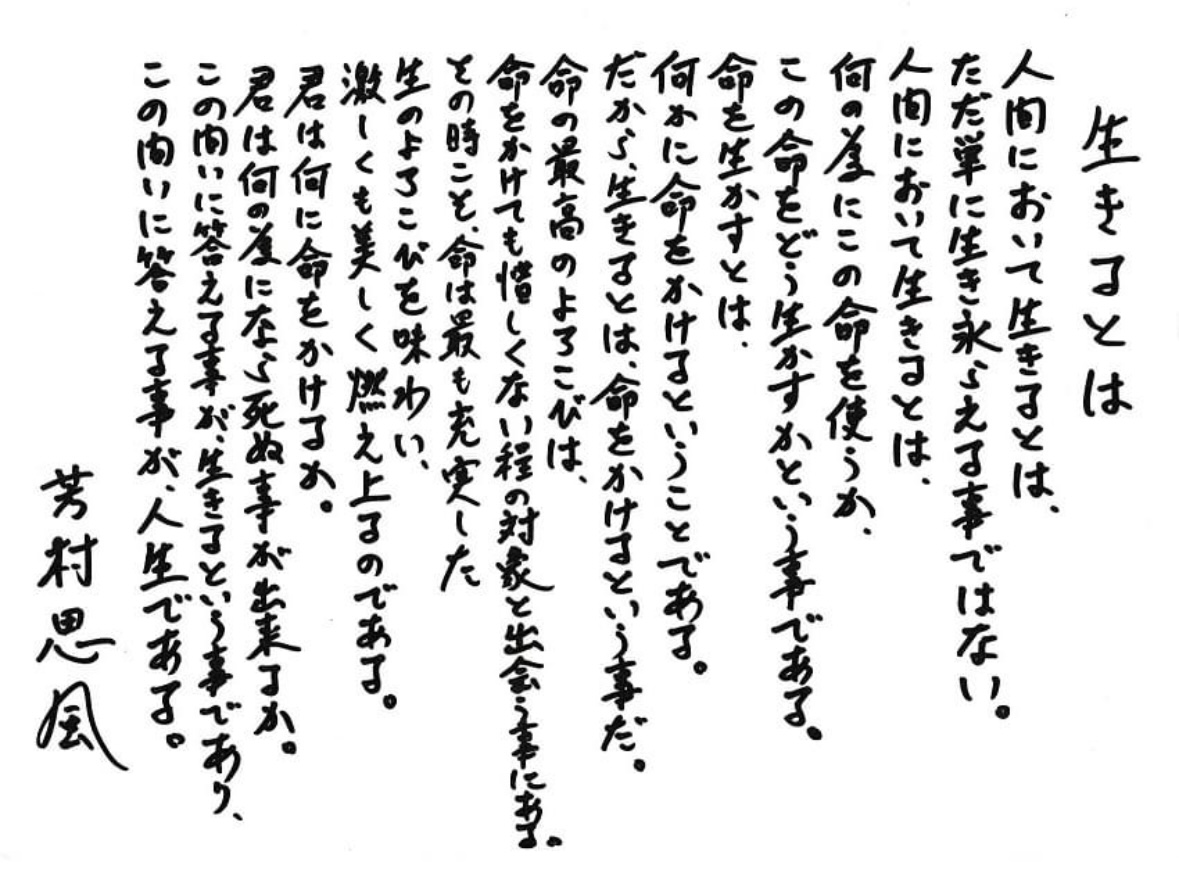 生きるとは
人間において生きるとは、
ただ単に生き永らえる事ではない。
人間において生きるとは、
何の為にこの命を使うか、
この命をどう生かすかという事である。
命を生かすとは、
何かに命をかけるということである。
だから、生きるとは、命をかけるという事だ。
命の最高のよろこびは、
命をかけても惜しくない程の対象と出会う事にある。
その時こそ、命は最も充実した
生のよろこびを味わい、
激しくも美しく燃え上るのである。
君は何に命をかけるか。
君は何の為になら死ぬ事が出来るか。
この問いに答える事が、生きるという事であり、
この問いに答える事が、人生である。
芳村思風